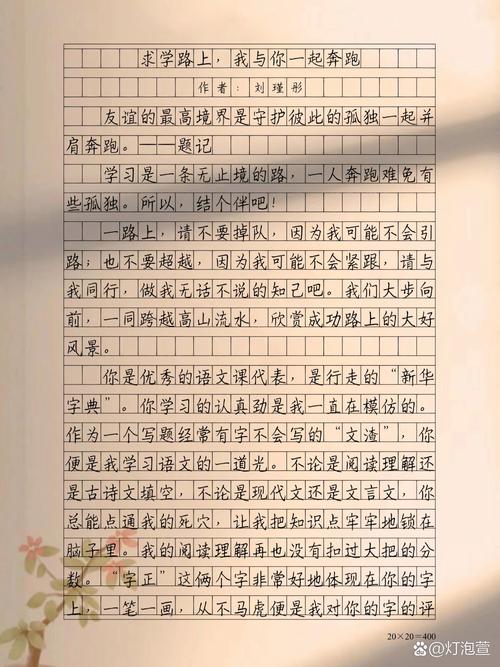 求学路上，我与你一起奔跑
作者：刘瑾彤
友谊的最高境界是守护彼此的孤独一起并
肩奔跑。——题记
学习是一条无止境的路，一人奔跑难免有
些孤独。所以，结个伴吧！
一路上，请不要掉队，因为我可能不会引
路；也不要超越，因为我可能不会紧跟，请与
我同行，做我无话不说的知己吧。我们大步向
前，一同跨越高山流水，欣赏成功路上的大好
风景。
你是优秀的语文课代表，是行走的“新华
字典”。你学习的认真劲是我一直在模仿的。
作为一个写题经常有字不会写的“文渣”，你
便是我学习语文的一道光。不论是阅读理解还
是古诗文填空，不论是现代文还是文言文，你
总能点通我的死穴，让我把知识点牢牢地锁在
脑子里。我的阅读理解再也没有扣过大把的分
数。“字正”这两个字非常好地体现在你的字
上，一笔一画，从不马虎便是我对你的字的评
20×20=400
@灯泡萱